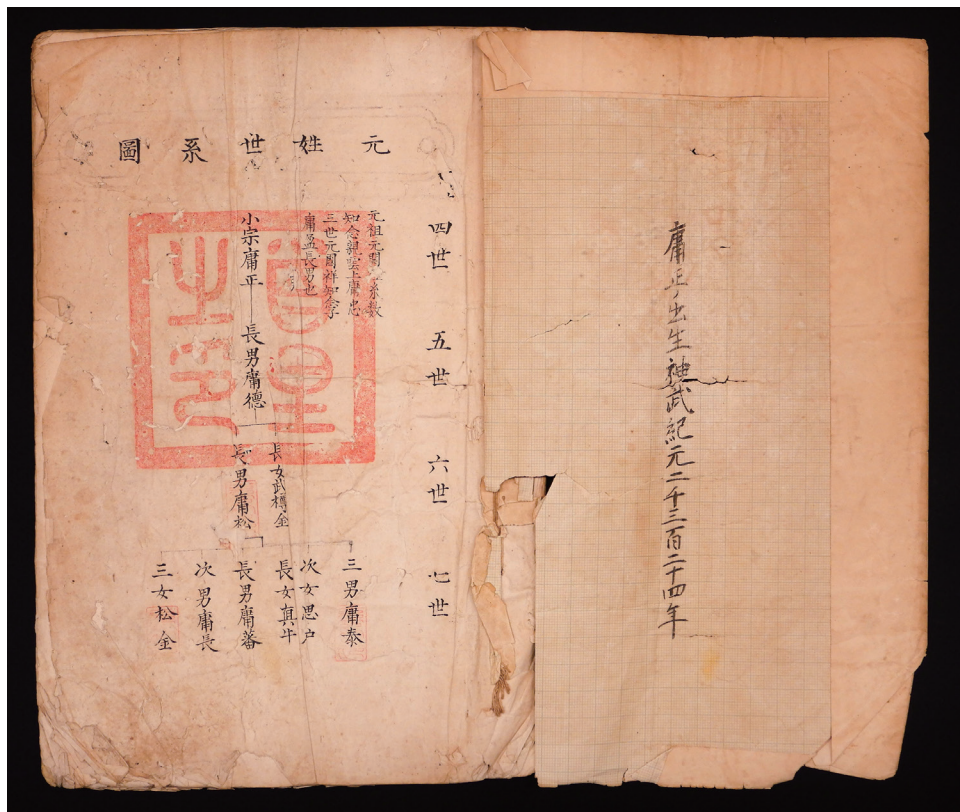 庸正出生神武紀元二千三百二十四年
元姓世系圖
四世
五世
六世
七世
元祖元閣 系数
知念親雲上庸忠
三世元閣祥知念子
庸孟長男也
小宗庸正
長男庸德
長女武樽金
長男庸松
三男庸泰
次女思户
長女真牛
長男庸蕃
次男庸長
三女松金